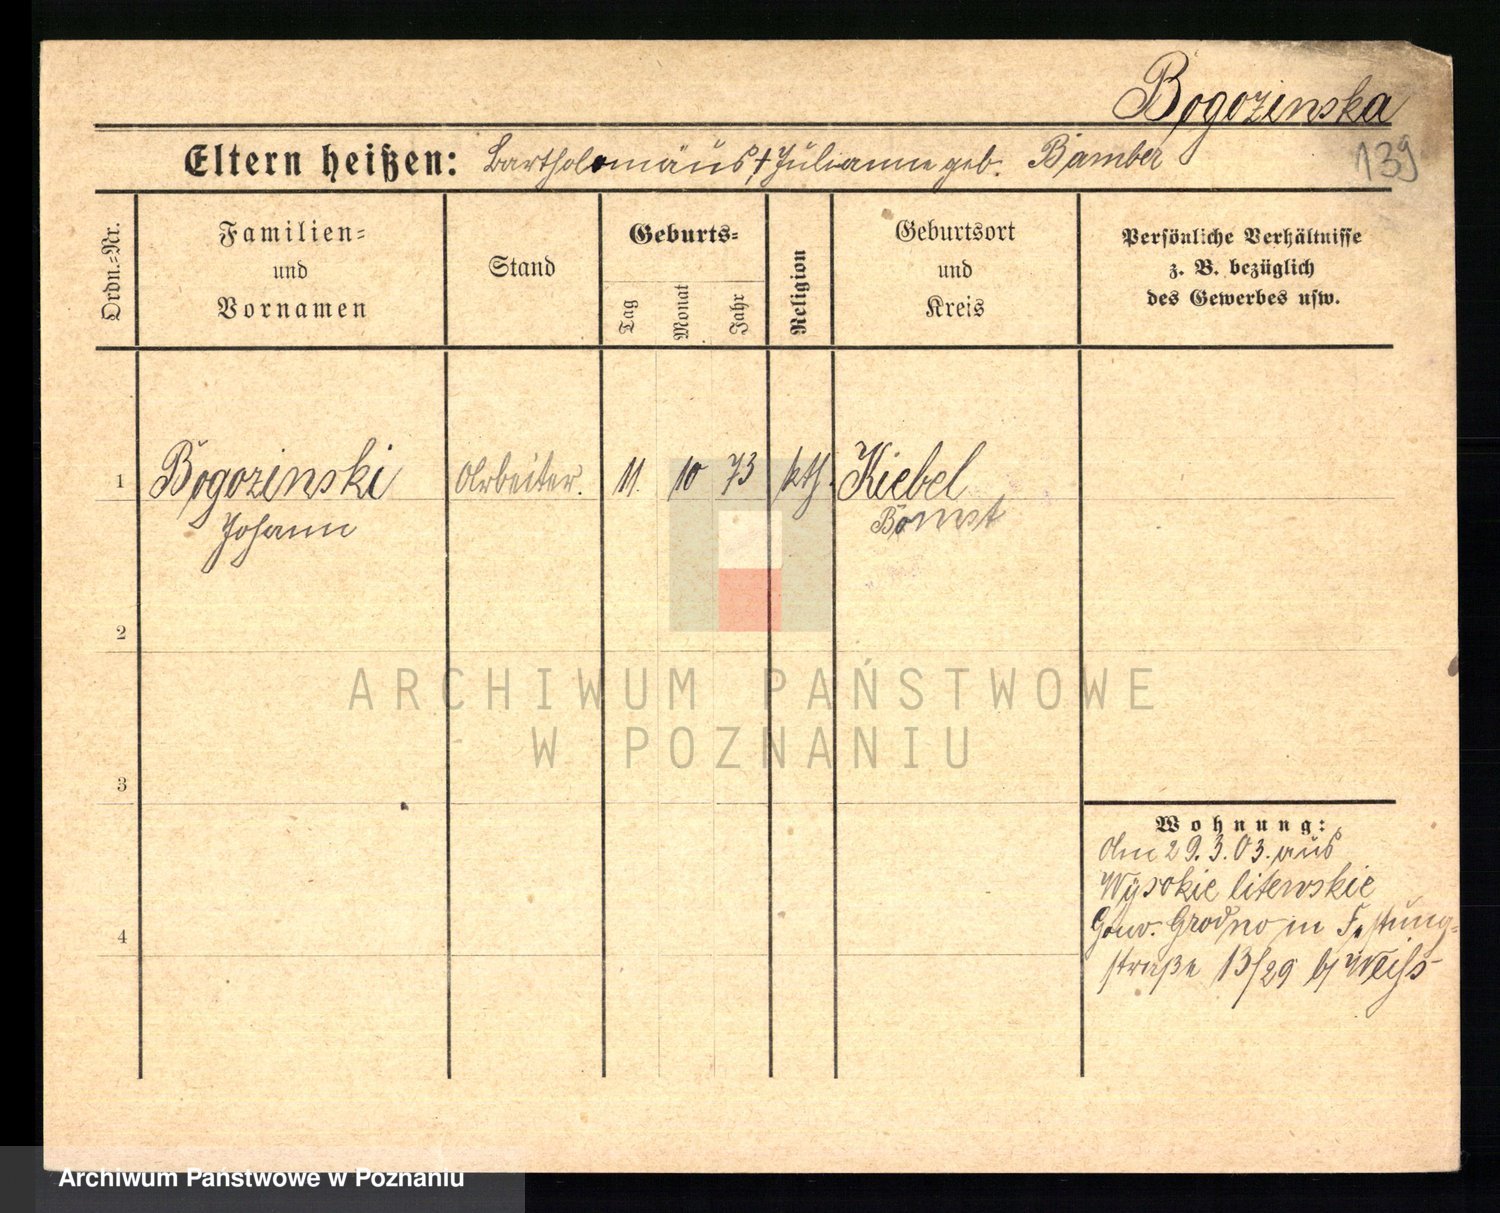 Bogozinska
Eltern heißen: Bartholomäus, † Julianne geb. Bamber
139
Ordn.-Nr.
Familien-
und
Vornamen
Stand
Geburts-
Tag
Monat
Jahr
Religion
Geburtsort
und
Kreis
Persönliche Verhältnisse
z. B. bezüglich
des Gewerbes usw.
1 Bogozinski Arbeiter. 11. 10 73 kth. Kiebel
Johann Bomst
2
ARCHIWUM PAŃSTWOWE
W POZNANIU
3
Wohnung:
29.3.03. aus
Wysokie litewskie
Gouv. Grodno in Festung-
4
straße 13/29 b/ Weiß
Archiwum Państwowe w Poznaniu